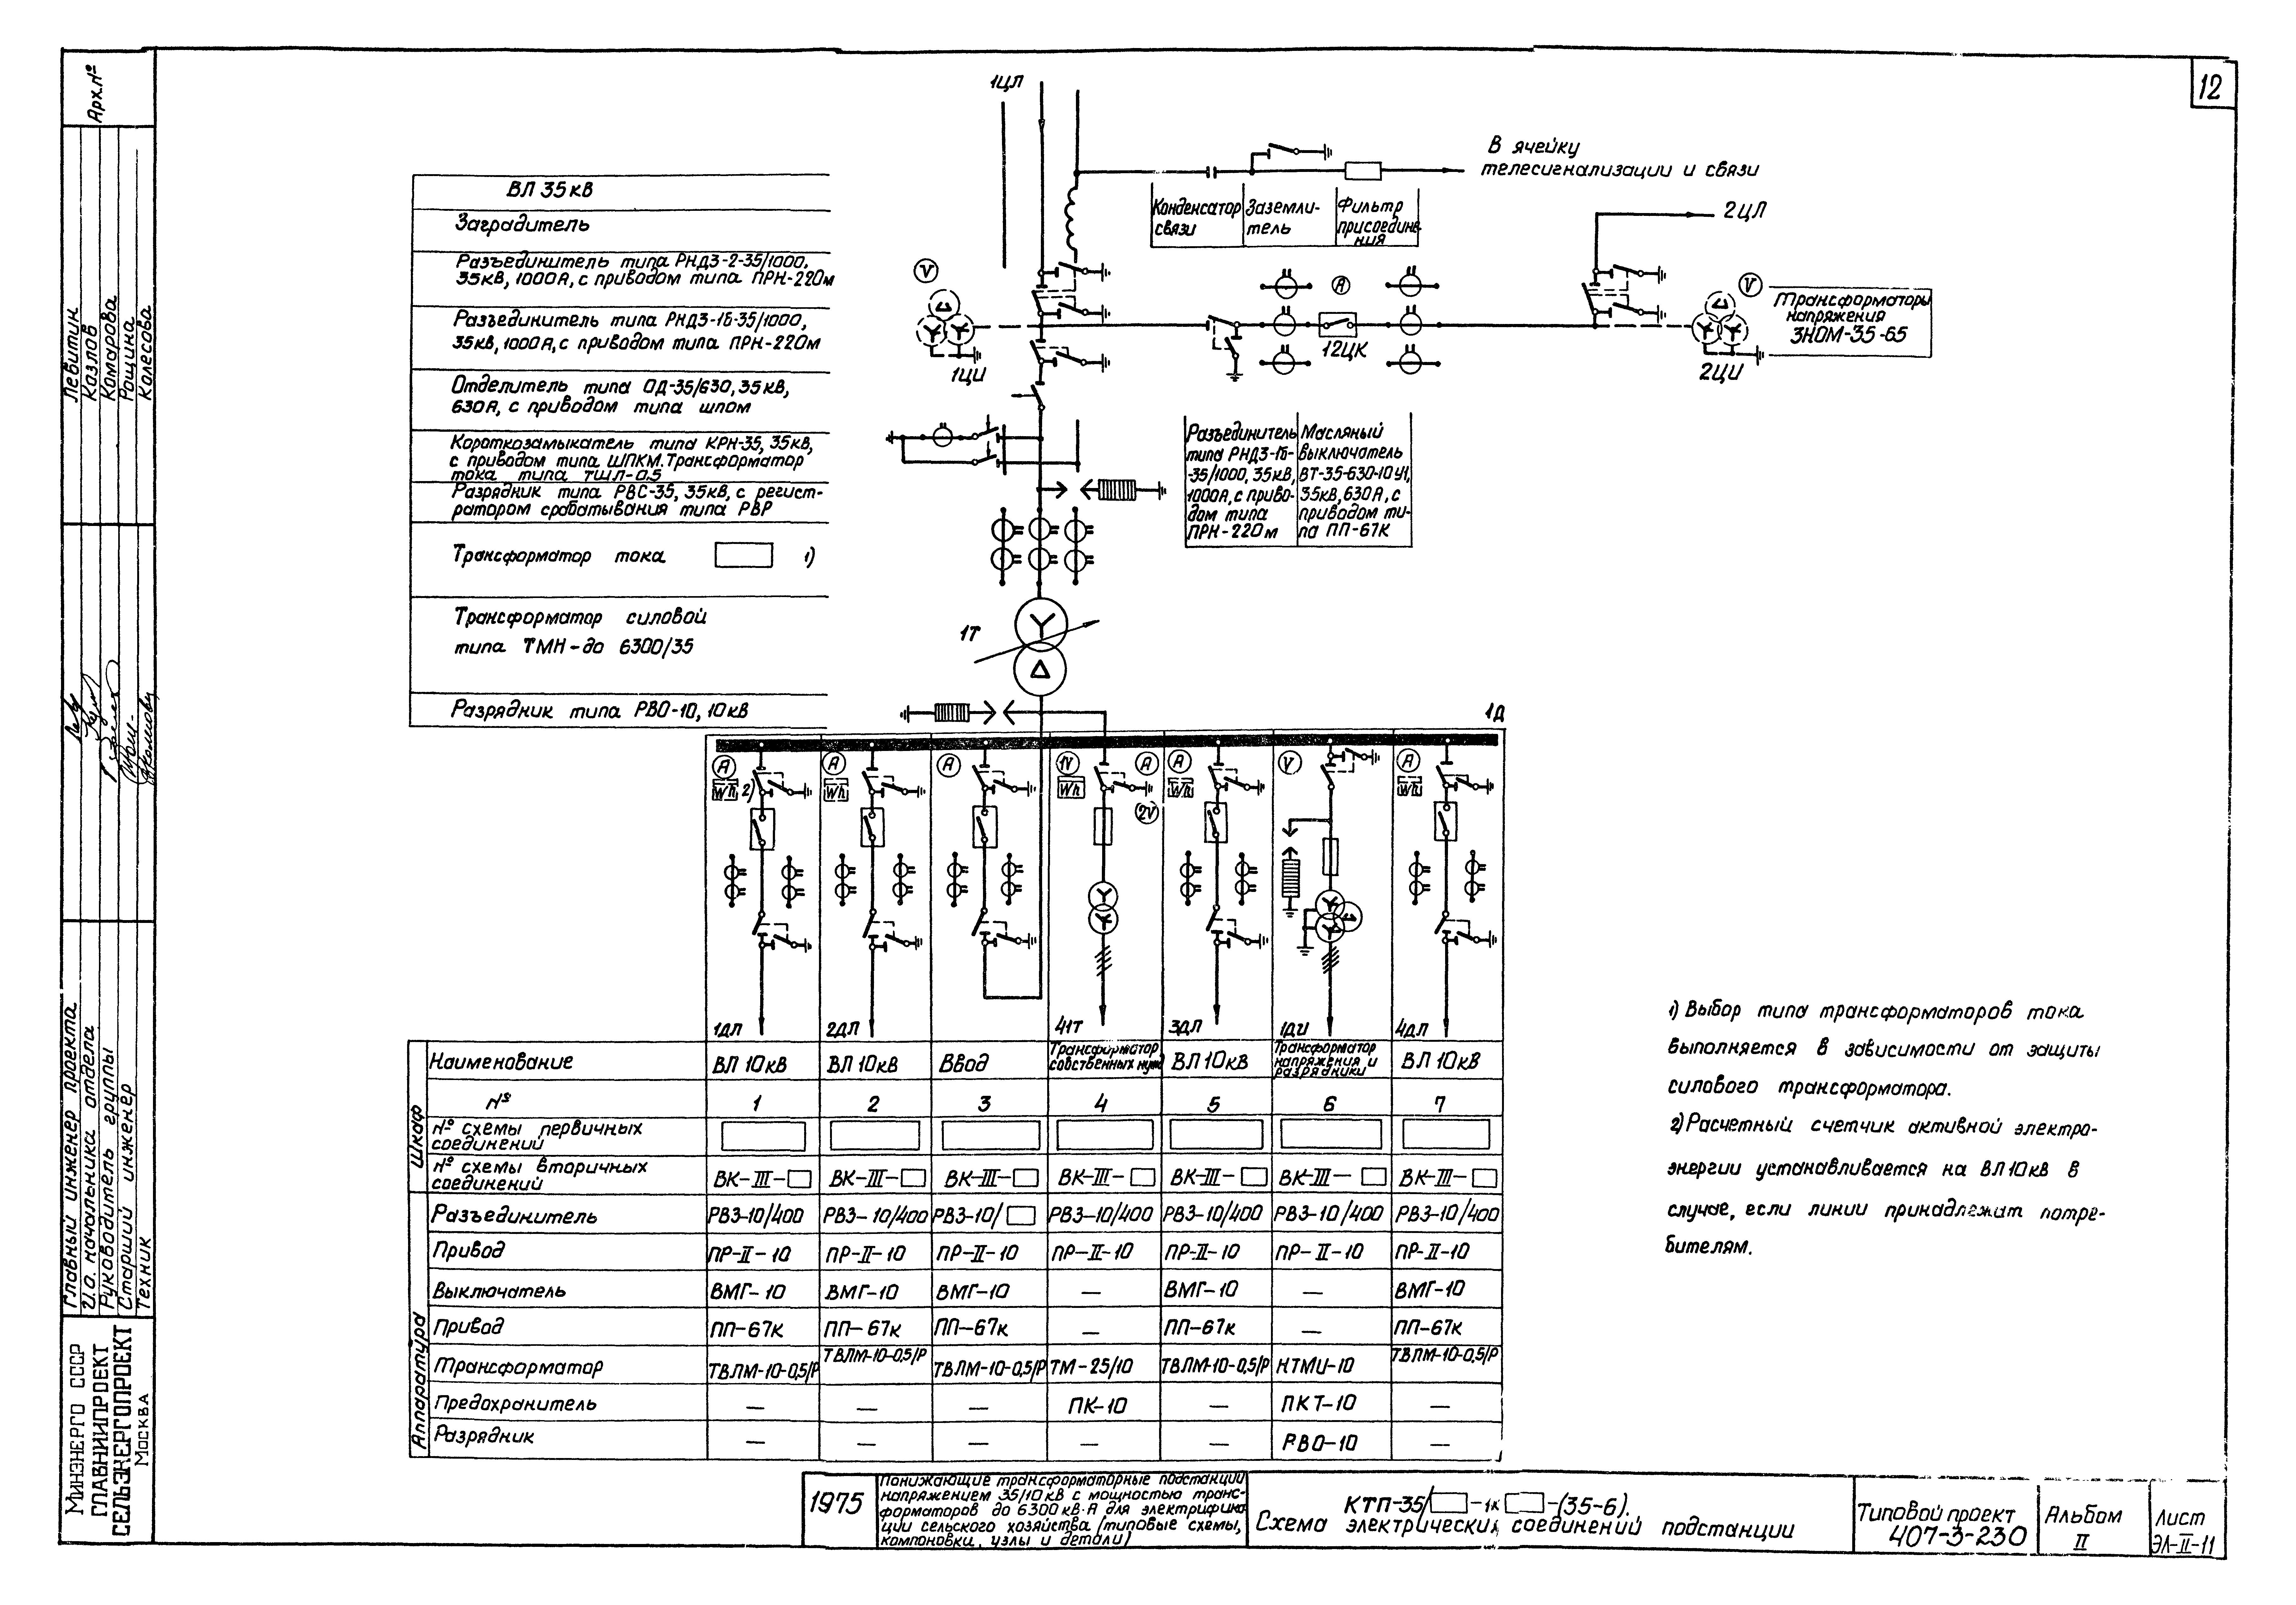 12
Арх.№
Левитин
Казлов
Комарова
Рощина
Колесова
Главный инженер проекта
И.о. начальника отдела
Руководитель группы
Старший инженер
Техник
Минэнерго СССР
ГЛАВНИИПРОЕКТ
СЕЛЬЭНЕРГОПРОЕКТ
Москва
ВЛ 35кв
Заградитель
Разъединитель типа РНДЗ-2-35/1000,
35кв, 1000А, с приводом типа ПРН-220м
Разъединитель типа РНДЗ-1б-35/1000,
35кв, 1000А, с приводом типа ПРН-220м
Отделитель типа ОД-35/630, 35кв,
630А, с приводом типа шпом
Короткозамыкатель типа КРН-35, 35кв,
с приводом типа ШПКМ. Трансформатор
тока типа ТШЛ-0.5
Разрядник типа РВС-35, 35кв, с регист-
ратором срабатывания типа РВР
Трансформатор тока 1)
Трансформатор силовой
типа ТМН-до 6300/35
Разрядник типа РВО-10, 10кв
1ЦЛ
В ячейку
телесигнализации и связи
Конденсатор
связи
Заземли-
тель
Фильтр
присоедине-
ния
2ЦЛ
V
1ЦИ
А
12ЦК
V
2ЦИ
Трансформаторы
напряжения
ЗНОМ-35-65
Разъединитель
типа РНДЗ-1б-
-35/1000, 35кв,
1000А, с приво-
дом типа
ПРН-220м
Масляный
выключатель
ВТ-35-630-10У1,
35кв, 630А, с
приводом ти-
па ПП-67К
1Т
1Д
А Wh 2)
А Wh
А
1V Wh А 2V
А Wh
V
А Wh
1ДЛ 2ДЛ 41Т 3ДЛ 1ДИ 4ДЛ
Шкаф
Наименование ВЛ 10кв ВЛ 10кв Ввод Трансформатор собственных нужд ВЛ 10кв Трансформатор напряжения и разрядники ВЛ 10кв
№ 1 2 3 4 5 6 7
№ схемы первичных
соединений
№ схемы вторичных
соединений ВК-III- ВК-III- ВК-III- ВК-III- ВК-III- ВК-III- ВК-III-
Аппаратура
Разъединитель РВЗ-10/400 РВЗ-10/400 РВЗ-10/ РВЗ-10/400 РВЗ-10/400 РВЗ-10/400 РВЗ-10/400
Привод ПР-II-10 ПР-II-10 ПР-II-10 ПР-II-10 ПР-II-10 ПР-II-10 ПР-II-10
Выключатель ВМГ-10 ВМГ-10 ВМГ-10 — ВМГ-10 — ВМГ-10
Привод ПП-67к ПП-67к ПП-67к — ПП-67к — ПП-67к
Трансформатор ТВЛМ-10-0,5/Р ТВЛМ-10-0,5/Р ТВЛМ-10-0,5/Р ТМ-25/10 ТВЛМ-10-0,5/Р НТМИ-10 ТВЛМ-10-0,5/Р
Предохранитель — — — ПК-10 — ПКТ-10 —
Разрядник — — — — — РВО-10 —
1) Выбор типа трансформаторов тока
выполняется в зависимости от защиты
силового трансформатора.
2) Расчетный счетчик активной электро-
энергии устанавливается на ВЛ10кв в
случае, если линии принадлежат потре-
бителям.
1975
Понижающие трансформаторные подстанции
напряжением 35/10кв с мощностью транс-
форматоров до 6300 кв·А для электрифика-
ции сельского хозяйства (типовые схемы,
компоновки, узлы и детали)
КТП-35/ -1х -(35-6).
Схема электрических соединений подстанции
Типовой проект
407-3-230
Альбом
II
Лист
ЭЛ-II-11